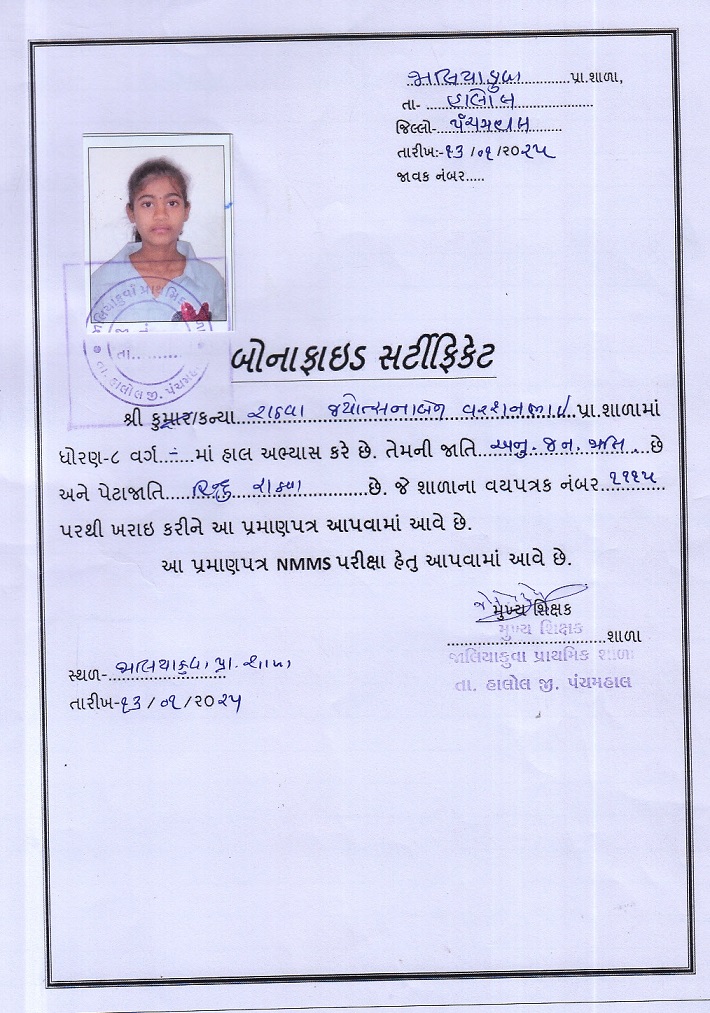 જાલિયાકુવા પ્રા.શાળા,
તા- હાલોલ
જિલ્લો- પંચમહાલ
તારીખ:-૧૩/૦૧/૨૦૨૫
જાવક નંબર.....
તા.
તા. હાલોલ જી. પંચમહાલ
બોનાફાઇડ સર્ટીફિકેટ
શ્રી કુમાર/કન્યા રાઠવા જયોત્સનાબેન વરશનભાઈ પ્રા.શાળામાં
ધોરણ-૮ વર્ગ ÷ માં હાલ અભ્યાસ કરે છે. તેમની જાતિ અનુ. જન. જાતિ છે
અને પેટાજાતિ હિન્દુ રાઠવા છે. જે શાળાના વયપત્રક નંબર ૧૧૧૫
પરથી ખરાઇ કરીને આ પ્રમાણપત્ર આપવામાં આવે છે.
આ પ્રમાણપત્ર NMMS પરીક્ષા હેતુ આપવામાં આવે છે.
મુખ્ય શિક્ષક
મુખ્ય શિક્ષક
શાળા
જાલિયાકુવા પ્રાથમિક શાળા
તા. હાલોલ જી. પંચમહાલ
સ્થળ- જાલિયાકુવા પ્રા. શાળા
તારીખ-૧૩/૦૧/૨૦૨૫